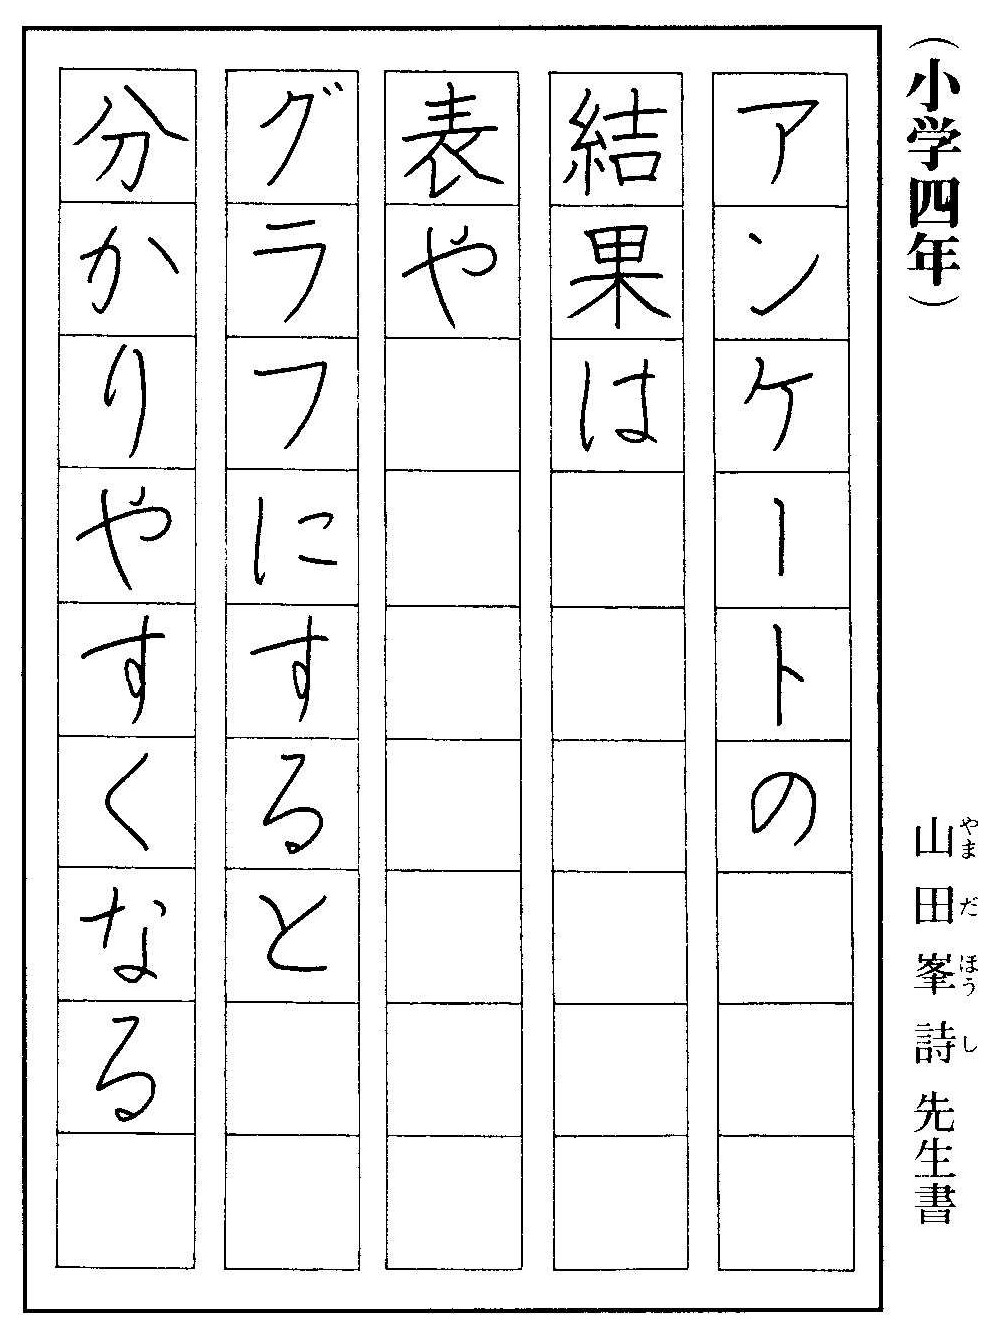 （小学四年）
山田峯詩先生書
やまだほうし
アンケートの
結果は
表や
グラフにすると
分かりやすくなる